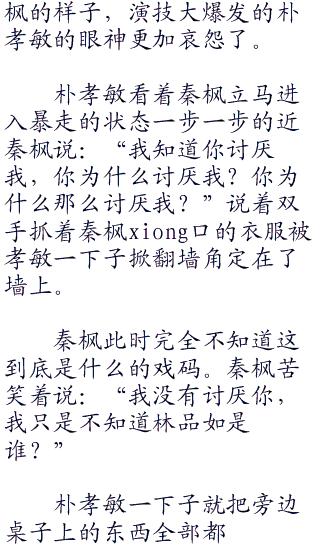 枫的样子，演技大爆发的朴
孝敏的眼神更加哀怨了。
朴孝敏看着秦枫立马进
入暴走的状态一步一步的近
秦枫说：“我知道你讨厌
我，你为什么讨厌我？你为
什么那么讨厌我？”说着双
手抓着秦枫xiong口的衣服被
孝敏一下子掀翻墙角定在了
墙上。
秦枫此时完全不知道这
到底是什么的戏码。秦枫苦
笑着说：“我没有讨厌你，
我只是不知道林品如是
谁？”
朴孝敏一下子就把旁边
桌子上的东西全部都